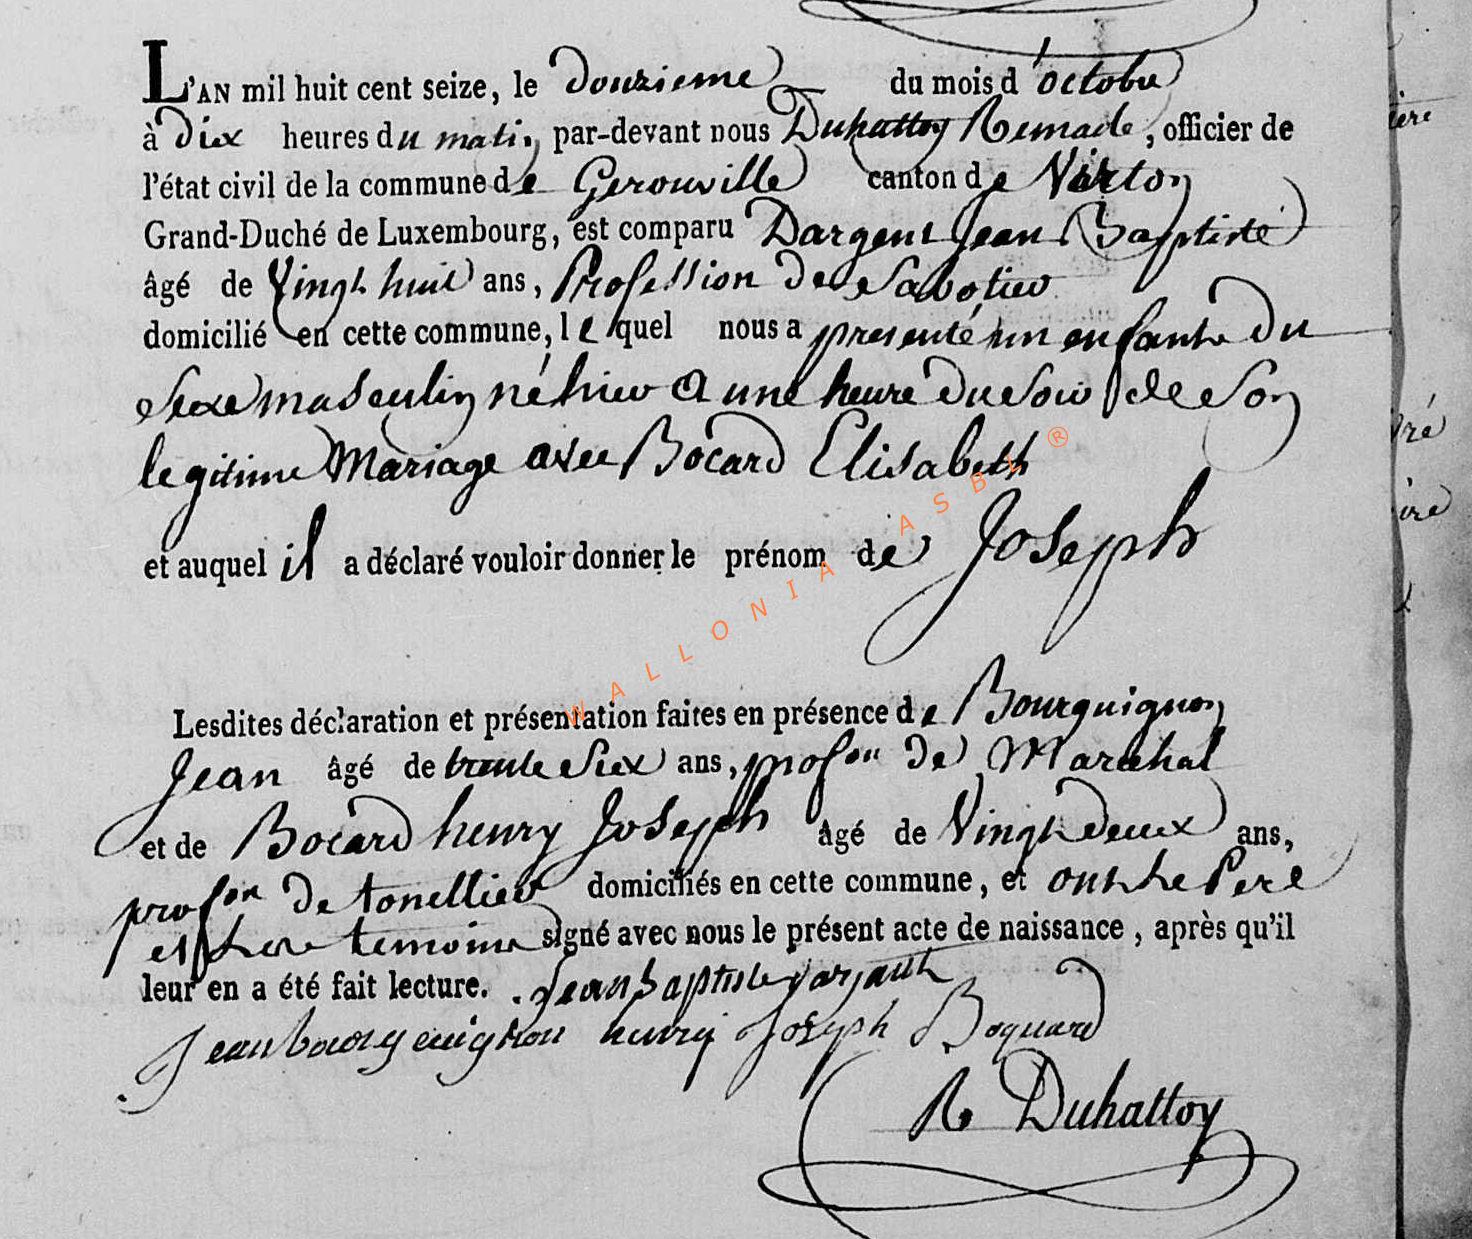 L'AN mil huit cent seize, le douzieme du mois d'octobre
à dix heures du matin par-devant nous Duhattoy Remacle, officier de
l'état civil de la commune de Gerouville canton de Virton
Grand-Duché de Luxembourg, est comparu Dargent Jean Baptiste
âgé de Vingt huit ans, Profession de Sabotier
domicilié en cette commune, lequel nous a presenté un enfant du
Sexe masculin né hier a une heure du Soir de Son
legitime Mariage avec Bocard Elisabeth
et auquel il a déclaré vouloir donner le prénom de Joseph
Lesdites déclaration et présentation faites en présence de Bourguignon
Jean âgé de trente Six ans, profon de Marechal
et de Bocard henry Joseph âgé de Vingt deux ans,
profon de tonellier domiciliés en cette commune, et ont le Pere
et les temoins signé avec nous le présent acte de naissance, après qu'il
leur en a été fait lecture. Jean baptiste darjant
Jean bourguignon henry Joseph Boquard
R Duhattoy
WALLONIA ASBL ®